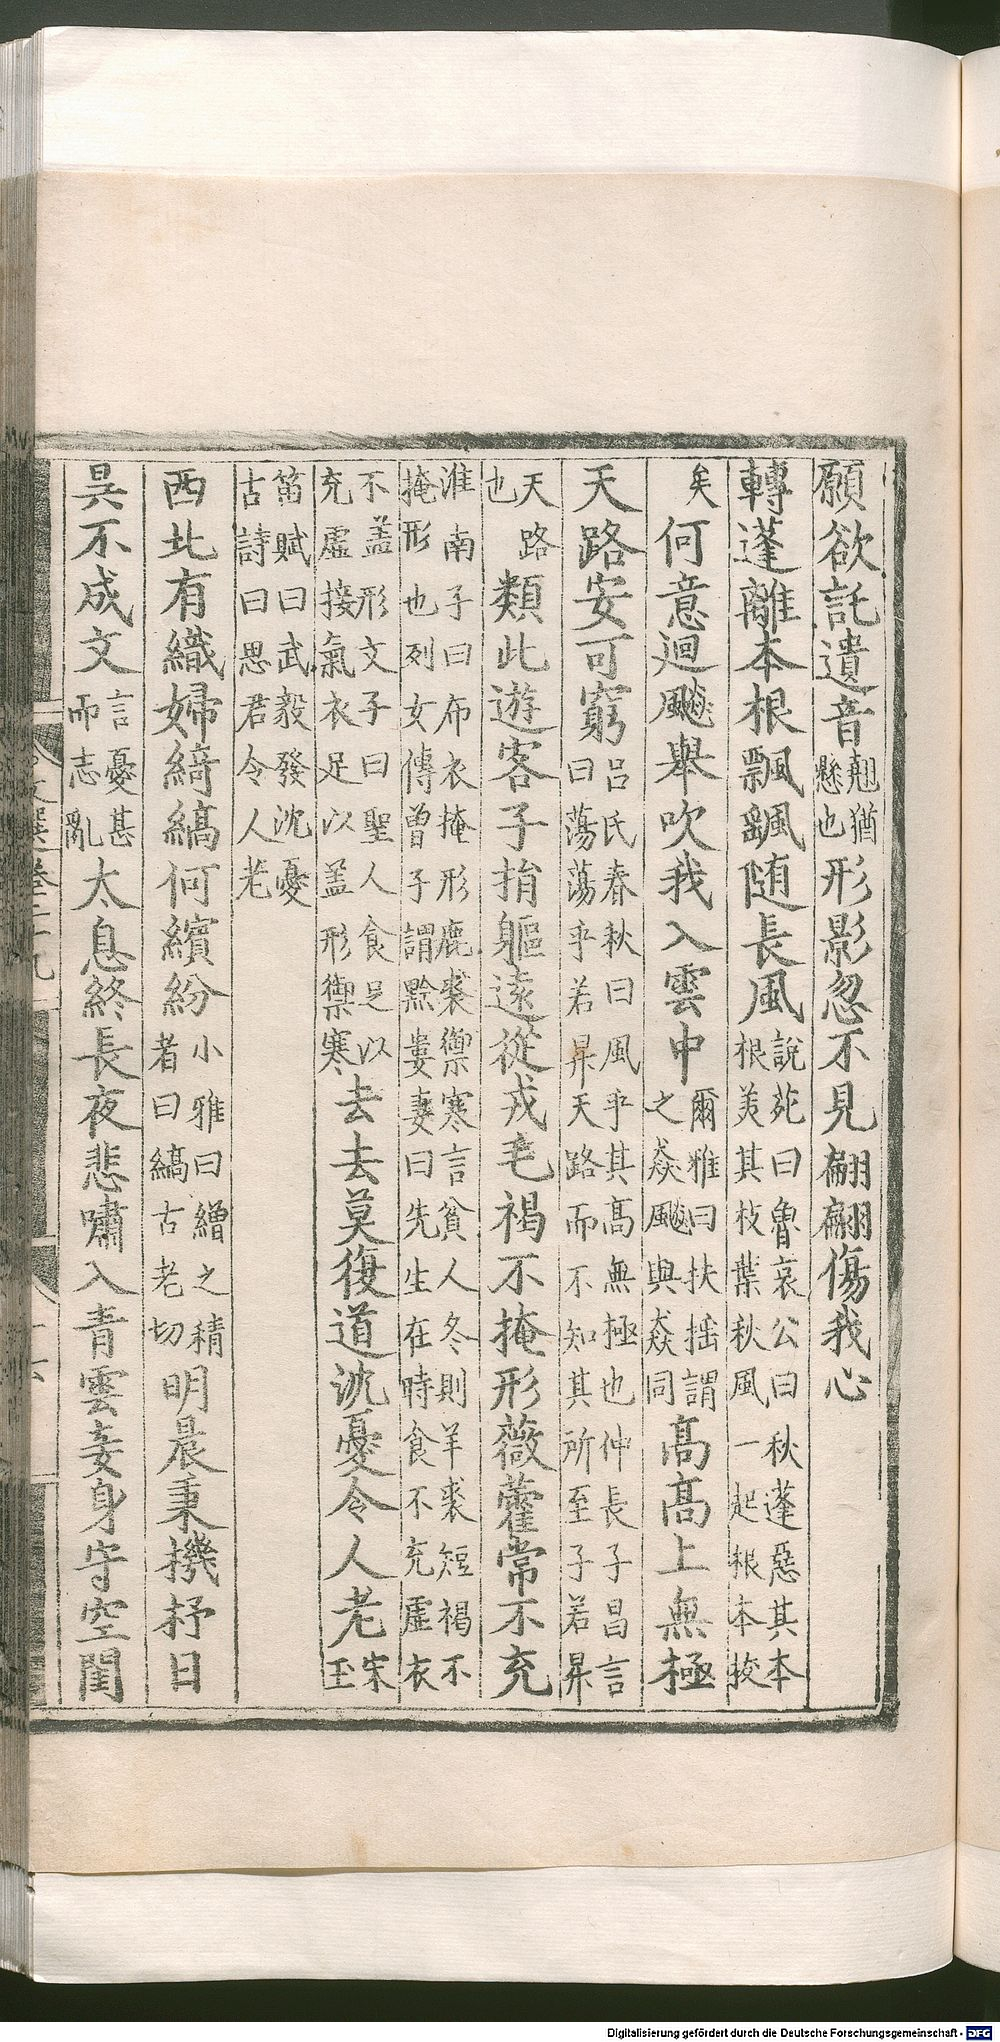 願欲託遺音翹猶懸也形影忽不見翩翩傷我心
轉蓬離本根飄颻随長風說苑曰魯哀公曰秋蓬惡其本根美其枝葉秋風一起根本拔
矣何意迴飈舉吹我入雲中爾雅曰扶揺謂之猋飈與猋同髙髙上無極
天路安可窮吕氏春秋曰風乎其髙無極也仲長子昌言曰蕩蕩乎若昇天路而不知其所至子若昇
天路也類此遊客子捐軀逺從戎毛褐不掩形薇藿常不充
淮南子曰布衣掩形鹿裘禦寒言貧人冬則羊裘短褐不掩形也列女傳曾子謂黔婁妻曰先生在時食不充虛衣
不盖形文子曰聖人食足以充虛接氣衣足以盖形禦寒去去莫復道沈憂令人老宋玉
笛賦曰武毅發沈憂古詩曰思君令人老
西北有織婦綺縞何繽紛小雅曰繒之精者曰縞古老切明晨秉機杼日
昃不成文言憂甚而志亂太息終長夜悲嘯入青雲妾身守空閨
文選卷二十九
Digitalisierung gefördert durch die Deutsche Forschungsgemeinschaft - DFG